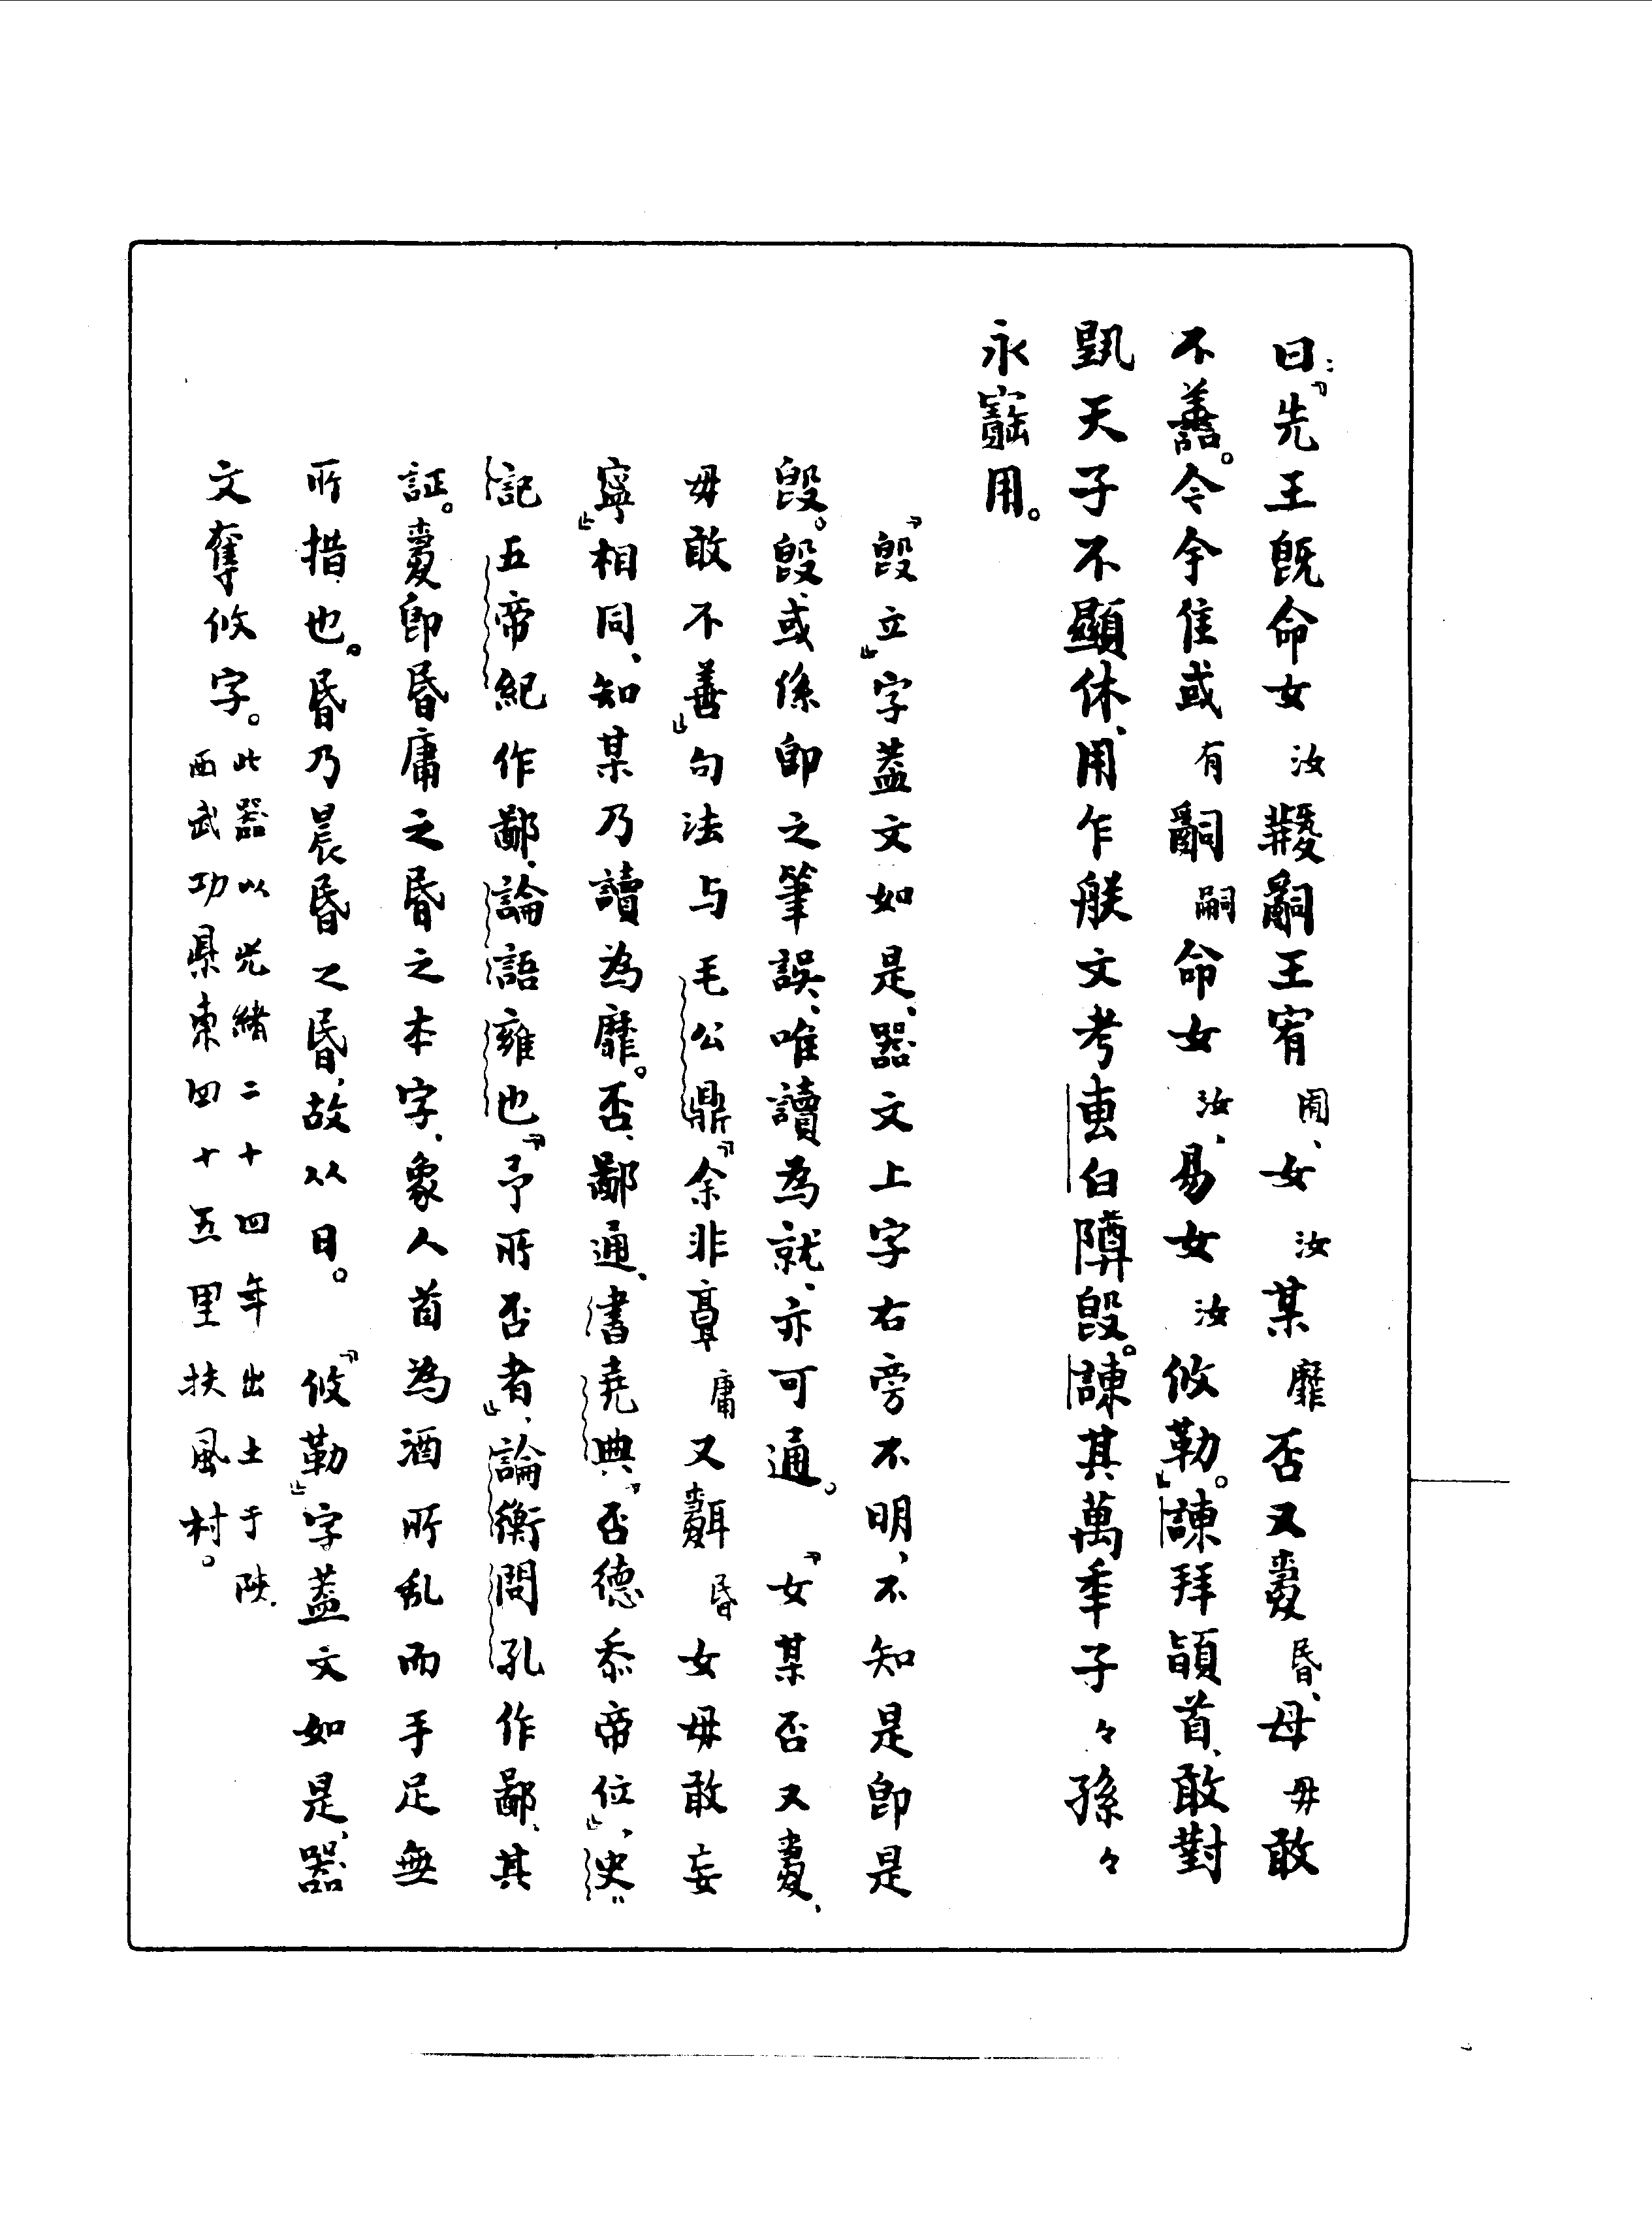 曰：『先王既命女汝𤔲王宥囿、女汝某靡否又昏、母毋敢
不譱。今余隹或有𤔲嗣命女汝、易女汝攸勒。』諫拜䭫首、敢對
𩁹天子不顯休、用乍朕文考叀白隫𣪘。諫其萬年子々孫々
永寶用。
『𣪘立』字蓋文如是、器文上字右旁不明、不知是卽是
𣪘。𣪘、或係卽之筆誤、唯讀為就、亦可通。『女某否又、
毋敢不善』句法与毛公鼎『余非庸又昏女毋敢妄
寧』相同、知某乃讀為靡。否、鄙通、書堯典『否德忝帝位』、史
記五帝紀作鄙、論語雍也『予所否者』、論衡問孔作鄙、其
証。卽昏庸之昏之本字、象人首為酒所乱而手足無
所措也。昏乃晨昏之昏、故从日。『攸勒』字蓋文如是、器
文奪攸字。此器以光緒二十四年出土于陝
西武功県東四十五里扶風村。